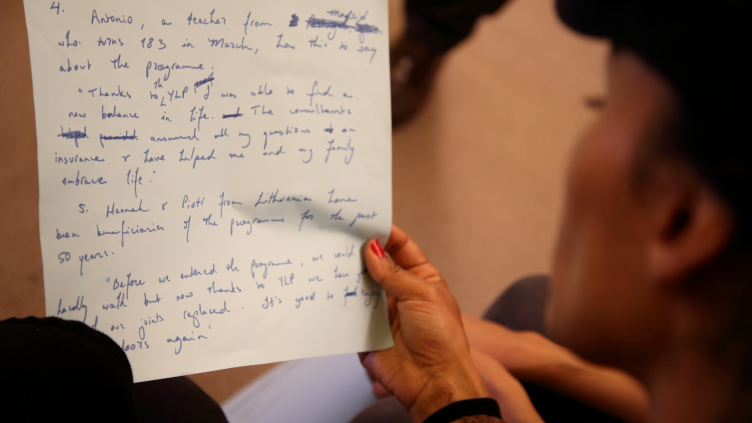 4. Antonio, a teacher from
who turns 183 in March, has this to say
about the programme.
"Thanks to the YLP I was able to find a
new balance in life. The consultants
answered all my questions on
insurance & have helped me and my family
embrace life."
5. Hannah & Piotr from Lithuania have
been beneficiaries of the programme for the past
50 years.
"Before we entered the programme, we could
hardly walk but now thanks to YLP we have
our joints replaced. It's good to
again"